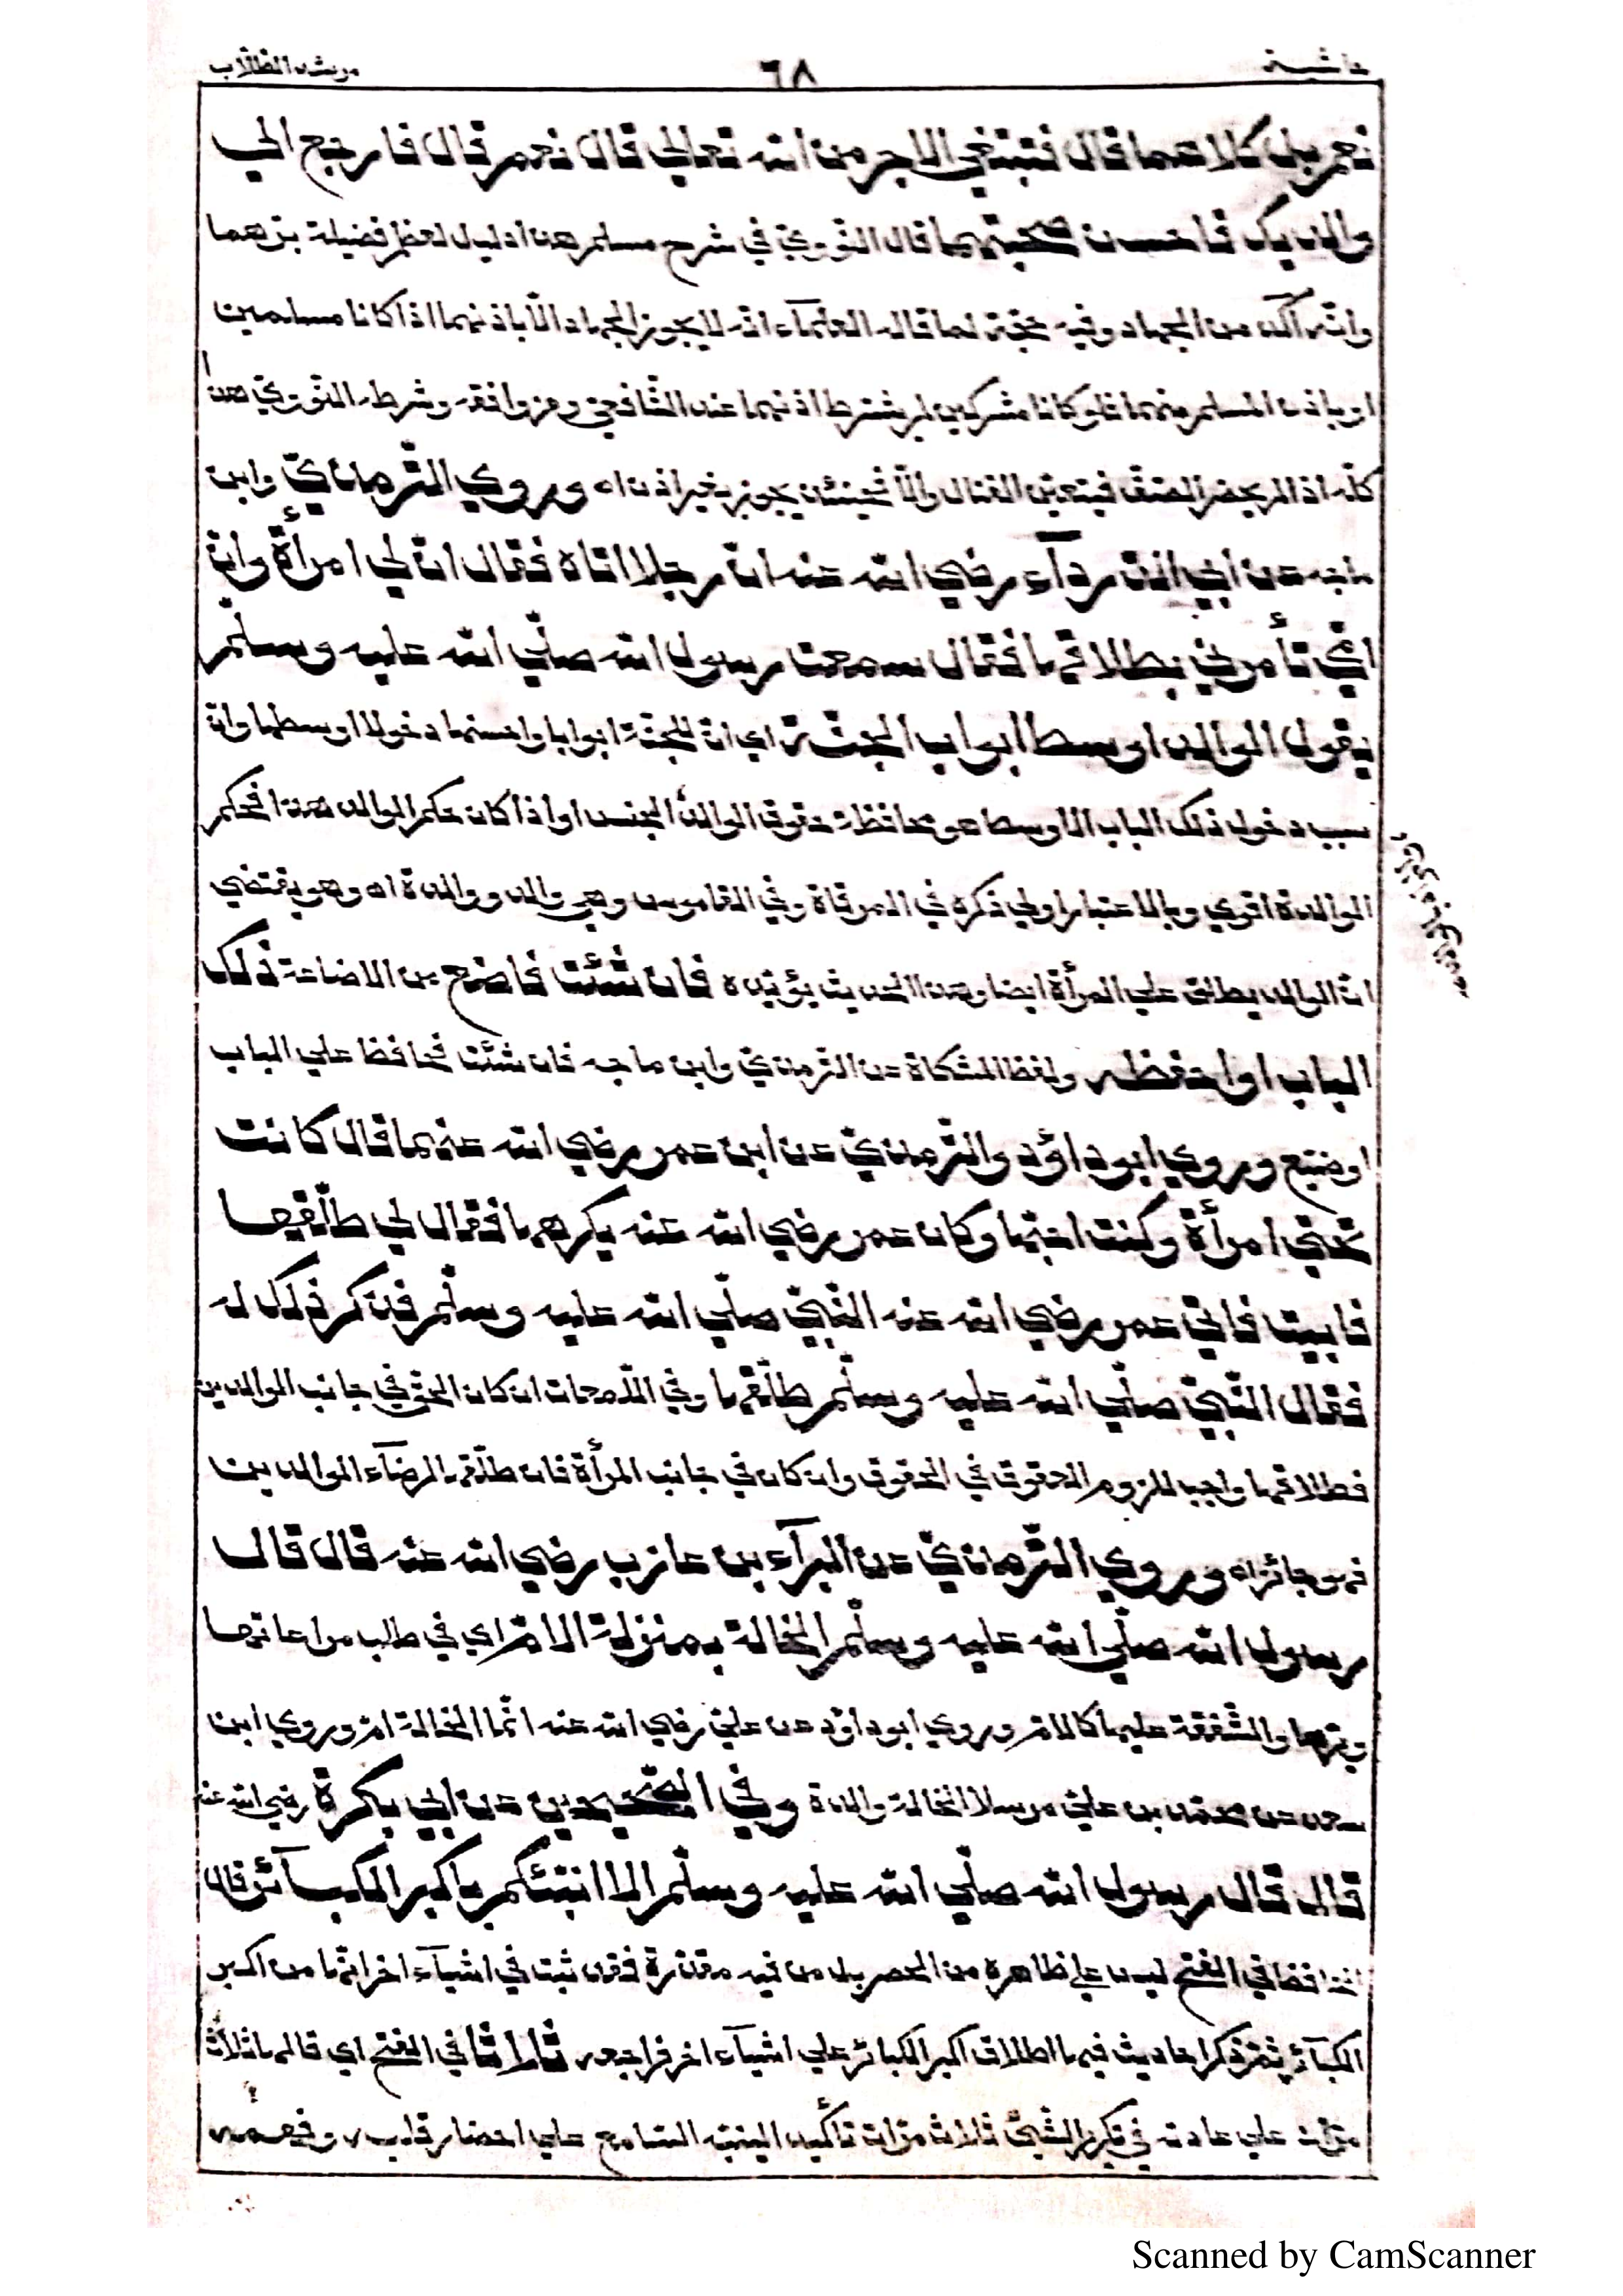 حاشية ٦٨ مرشد الطلاب
نعم بل كلاهما قال فتبتغي الاجر من الله تعالى قال نعم قال فارجع الي
والديك فاحسن صحبتهما قال النّووي في شرح مسلم هذا دليل لعظم فضيلة برّهما
وانّه اٰكد من الجهاد وفيه حجّة لما قاله العلمآء انّه لا يجوز الجهاد الّا باذنهما اذا كانا مسلمين
او باذن المسلم منهما فلو كانا مشركين لم يشترط اذنهما عند الشّافعيّ ومن وافقه وشرط النّوويّ هذا
كلّه اذا لم يحضر الصّفّ فيتعيّن القتال والّا فحينئذ يجوز بغير اذن اه وروي التّرمذيّ وابن
ماجه عن ابي الدّرداء رضي الله عنه انّ رجلا اتاه فقال انّ لي امرأة وانّ
امّي تأمرني بطلاقها فقال سمعت رسول الله صلّي الله عليه وسلّم
يقول الوالد اوسط ابواب الجنّة اي انّ للجنّة ابوابا واحسنها دخولا اوسطها وانّ
سبب دخول ذلك الباب الاوسط هو محافظة حقوق الوالد الجنس او اذا كان حكم الوالد هذا فحكم
الوالدة اقوي وبالاعتبار اولي ذكره في المرقاة وفي القاموس وهي والد ووالدة اه وهو يقتضي
انّ الوالد يطلق علي المرأة ايضا وهذا الحديث يؤيّده فان شئت فاضع من الاضاعة ذلك
الباب او احفظه ولفظ المشكاة عن التّرمذيّ وابن ماجه فان شئت فحافظ علي الباب
او ضيّع وروي ابو داؤد والتّرمذيّ عن ابن عمر رضي الله عنهما قال كانت
تحتي امرأة وكنت احبّها وكان عمر رضي الله عنه يكرهها فقال لي طلّقها
فابيت فاتي عمر رضي الله عنه النّبيّ صلّي الله عليه وسلّم فذكر ذلك له
فقال النّبيّ صلّي الله عليه وسلّم طلّقها وفي اللّمعات ان كان الحقّ في جانب الوالدين
فطلاقها واجب للزوم العقوق في الحقوق وان كان في جانب المرأة فان طلّقها لرضآء الوالدين
فهو جائز اه وروي التّرمذيّ عن البرآء بن عازب رضي الله عنه قال قال
رسول الله صلّي الله عليه وسلّم الخالة بمنزلة الامّ اي في طلب مراعاتها
وبرّها والشّفقة عليها كالامّ وروي ابو داؤد عن عليّ رضي الله عنه انّما الخالة امّ وروي ابن
سعد عن محمّد بن عليّ مرسلا الخالة والدة وفي الصّحيحين عن ابي بكرة رضي الله عنه
قال قال رسول الله صلّي الله عليه وسلّم الا انبّئكم باكبر الكبآئر قال
الحافظ في الفتح ليس علي ظاهره من الحصر بل من فيه مقدّرة فقد ثبت في اشيآء اخر انّها من اكبر
الكبآئر ثمّ ذكر احاديث فيها اطلاق اكبر الكبائر علي اشيآء اخر فراجعه ثلاثا في الفتح اي قالها ثلاث
مرّات علي عادته في تكرير الشّيئ ثلاث مرّات تأكيدا لينتبه السّامع علي احضار قلبه وفهمه
Scanned by CamScanner